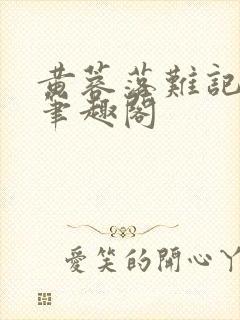 黄蓉落難記
筆趣閣
愛笑的開心丫